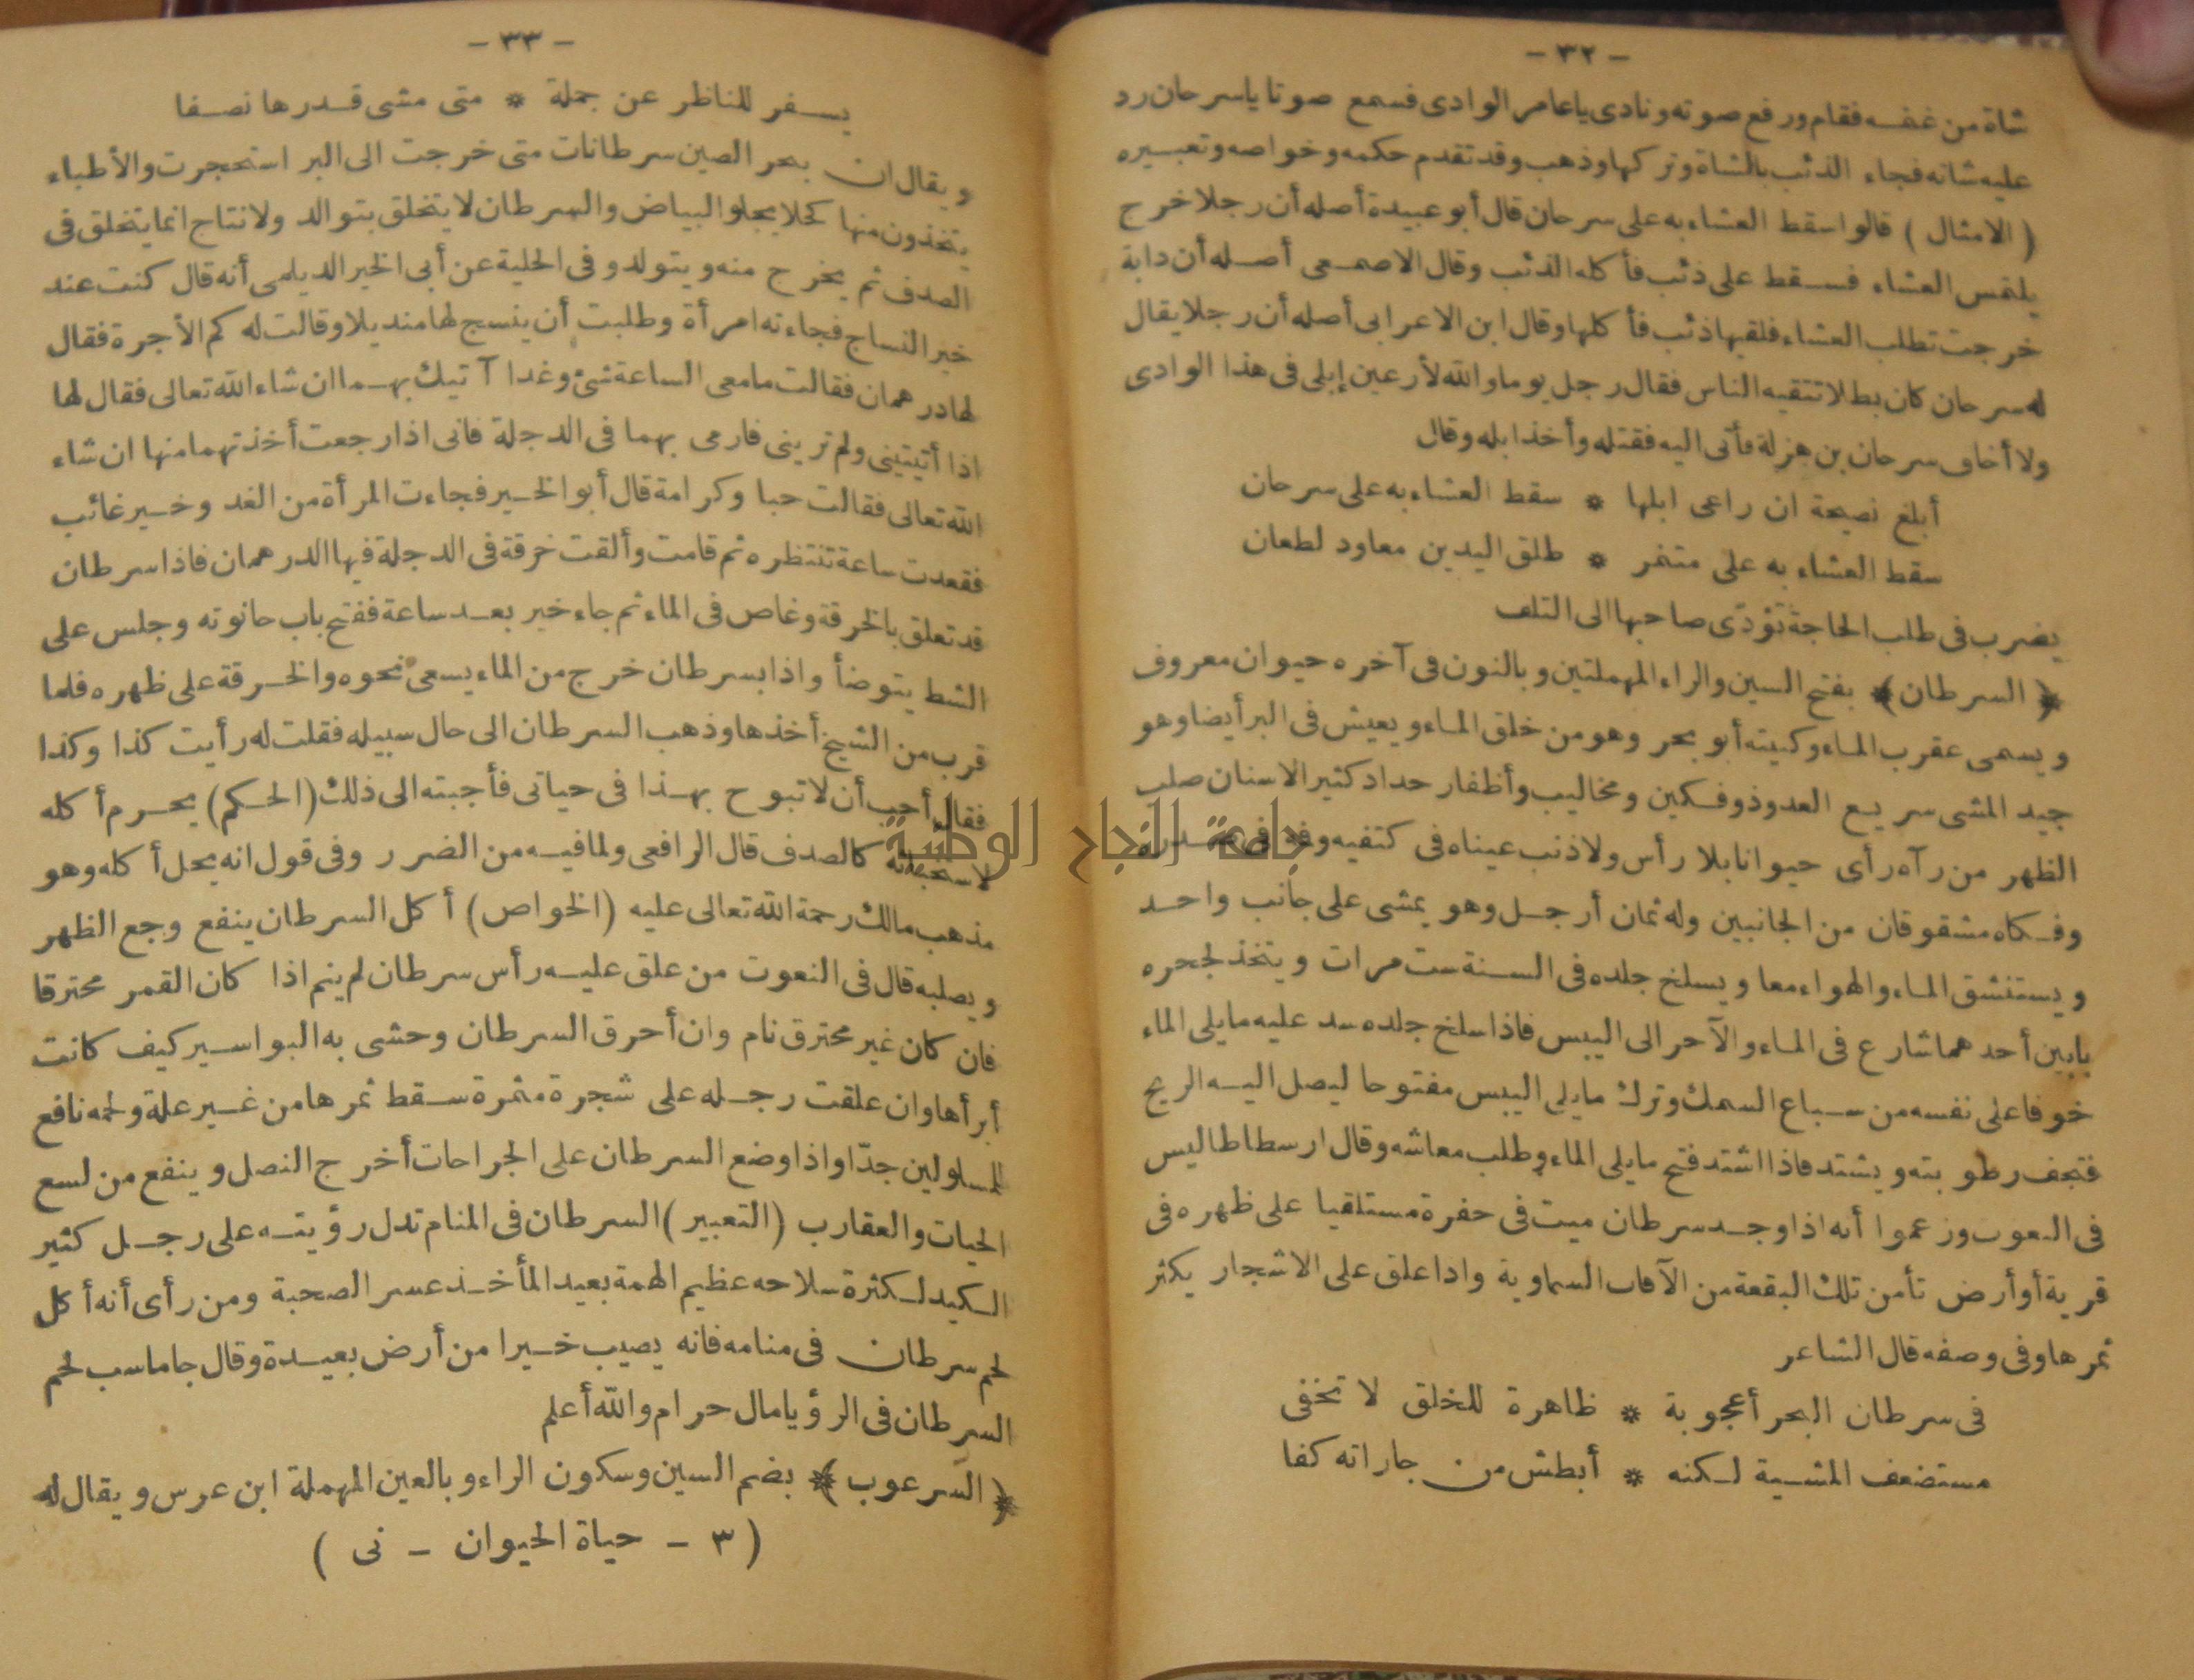 - ٣٢ -
شاة من غنمه فقام ورفع صوته ونادى ياعامر الوادى فسمع صوتا ياسرحان رد
عليه شاته فجاء الذئب بالشاة وتركها وذهب وقد تقدم حكمه وخواصه وتعبيره
( الامثال ) قالوا سقط العشاء به على سرحان قال أبو عبيدة أصله أن رجلا خرج
يلتمس العشاء فسقط على ذئب فأكله الذئب وقال الاصمعى أصله أن دابة
خرجت تطلب العشاء فلقيها ذئب فأكلها وقال ابن الاعرابى أصله أن رجلا يقال
له سرحان كان بطلا تتقيه الناس فقال رجل يوما والله لأرعين إبلى فى هذا الوادى
ولا أخاف سرحان بن هزلة فأتى اليه فقتله وأخذ ابله وقال
أبلغ نصيحة ان راعى ابلها * سقط العشاء به على سرحان
سقط العشاء به على متنمر * طلق اليدين معاود لطعان
يضرب فى طلب الحاجة تؤدّى صاحبها الى التلف
﴿ السرطان ﴾ بفتح السين والراء المهملتين وبالنون فى آخره حيوان معروف
ويسمى عقرب الماء وكنيته أبو بحر وهو من خلق الماء ويعيش فى البر أيضا وهو
جيد المشى سريع العدو ذو فكين ومخاليب وأظفار حداد كثير الاسنان صلب
الظهر من رآه رأى حيوانا بلا رأس ولا ذنب عيناه فى كتفيه وفمه فى صدره
وفكاه مشقوقان من الجانبين وله ثمان أرجل وهو يمشى على جانب واحد
ويستنشق الماء والهواء معا ويسلخ جلده فى السنة ست مرات ويتخذ لجحره
بابين أحدهما شارع فى الماء والآخر الى اليبس فاذا سلخ جلده سد عليه مايلى الماء
خوفا على نفسه من سباع السمك وترك مايلى اليبس مفتوحا ليصل اليه الريح
فتجف رطوبته ويشتد فاذا اشتد فتح مايلى الماء وطلب معاشه وقال ارسطاطاليس
فى النعوت وزعموا أنه اذا وجد سرطان ميت فى حفرة مستلقيا على ظهره فى
قرية أو أرض تأمن تلك البقعة من الآفات السماوية واذا علق على الاشجار يكثر
ثمرها وفى وصفه قال الشاعر
فى سرطان البحر أعجوبة * ظاهرة للخلق لا تخفى
مستضعف المشية لكنه * أبطش من جاراته كفا
- ٣٣ -
يسفر للناظر عن جملة * متى مشى قدرها نصفا
ويقال ان بحر الصين سرطانات متى خرجت الى البر استحجرت والأطباء
يتخذون منها كحلا يجلو البياض والسرطان لا يتخلق بتوالد ولا نتاج انما يتخلق فى
الصدف ثم يخرج منه ويتولد وفى الحلية عن أبى الخير الديلمى أنه قال كنت عند
خير النساج فجاءته امرأة وطلبت أن ينسج لها منديلا وقالت له كم الأجرة فقال
لها درهمان فقالت مامعى الساعة شئ وغدا آتيك بهما ان شاء الله تعالى فقال لها
اذا أتيتينى ولم ترينى فارمى بهما فى الدجلة فانى اذا رجعت أخذتهما منها ان شاء
الله تعالى فقالت حبا وكرامة قال أبو الخير فجاءت المرأة من الغد وخير غائب
فقعدت ساعة تنتظره ثم قامت وألقت خرقة فى الدجلة فيها الدرهمان فاذا سرطان
قد تعلق بالخرقة وغاص فى الماء ثم جاء خير بعد ساعة ففتح باب حانوته وجلس على
الشط يتوضأ واذا بسرطان خرج من الماء يسعى نحوه والخرقة على ظهره فلما
قرب من الشيخ أخذها وذهب السرطان الى حال سبيله فقلت له رأيت كذا وكذا
فقال أحب أن لا تبوح بهذا فى حياتى فأجبته الى ذلك (الحكم) يحرم أكله
لاستخباثه كالصدف قال الرافعى ولما فيه من الضرر وفى قول انه يحل أكله وهو
مذهب مالك رحمة الله تعالى عليه (الخواص) أكل السرطان ينفع وجع الظهر
ويصلبه قال فى النعوت من علق عليه رأس سرطان لم ينم اذا كان القمر محترقا
فان كان غير محترق نام وان أحرق السرطان وحشى به البواسير كيف كانت
أبرأها وان علقت رجله على شجرة مثمرة سقط ثمرها من غير علة ولحمه نافع
للمسلولين جدّا واذا وضع السرطان على الجراحات أخرج النصل وينفع من لسع
الحيات والعقارب (التعبير) السرطان فى المنام تدل رؤيته على رجل كثير
الكيد لكثرة سلاحه عظيم الهمة بعيد المأخذ عسر الصحبة ومن رأى أنه أكل
لحم سرطان فى منامه فانه يصيب خيرا من أرض بعيدة وقال جاماسب لحم
السرطان فى الرؤيا مال حرام والله أعلم
﴿ السرعوب ﴾ بضم السين وسكون الراء وبالعين المهملة ابن عرس ويقال له
( ٣ - حياة الحيوان - نى )
جامعة النجاح الوطنية